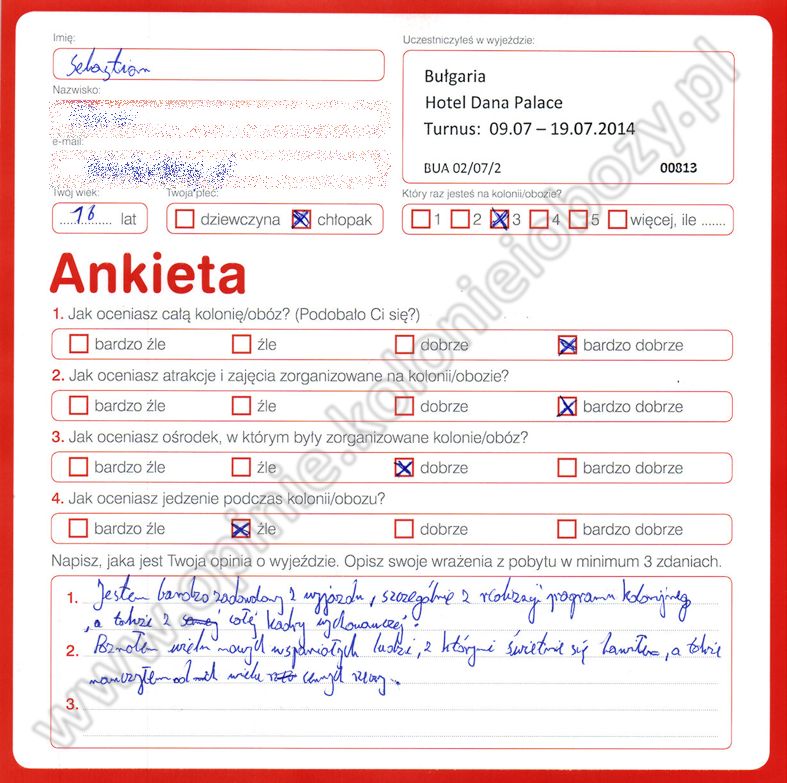 Imię:
Sebastian
Uczestniczyłeś w wyjeździe:
Bułgaria
Hotel Dana Palace
Turnus: 09.07 – 19.07.2014
BUA 02/07/2 00813
Nazwisko:
e-mail:
Twój wiek:
16 lat
Twoja płeć:
dziewczyna chłopak
Który raz jesteś na kolonii/obozie?
1 2 3 4 5 więcej, ile .......
Ankieta
1. Jak oceniasz całą kolonię/obóz? (Podobało Ci się?)
bardzo źle źle dobrze bardzo dobrze
2. Jak oceniasz atrakcje i zajęcia zorganizowane na kolonii/obozie?
bardzo źle źle dobrze bardzo dobrze
3. Jak oceniasz ośrodek, w którym były zorganizowane kolonie/obóz?
bardzo źle źle dobrze bardzo dobrze
4. Jak oceniasz jedzenie podczas kolonii/obozu?
bardzo źle źle dobrze bardzo dobrze
Napisz, jaka jest Twoja opinia o wyjeździe. Opisz swoje wrażenia z pobytu w minimum 3 zdaniach.
1. Jestem bardzo zadowolony z wyjazdu, szczególnie z realizacji programu kolonijnego
, a także z całej kadry wychowawczej.
2. Poznałem wielu nowych wspaniałych ludzi, z którymi świetnie się bawiłem, a także
nauczyłem od nich wiele cennych rzeczy.
3.
www.opinie.kolonieiobozy.pl